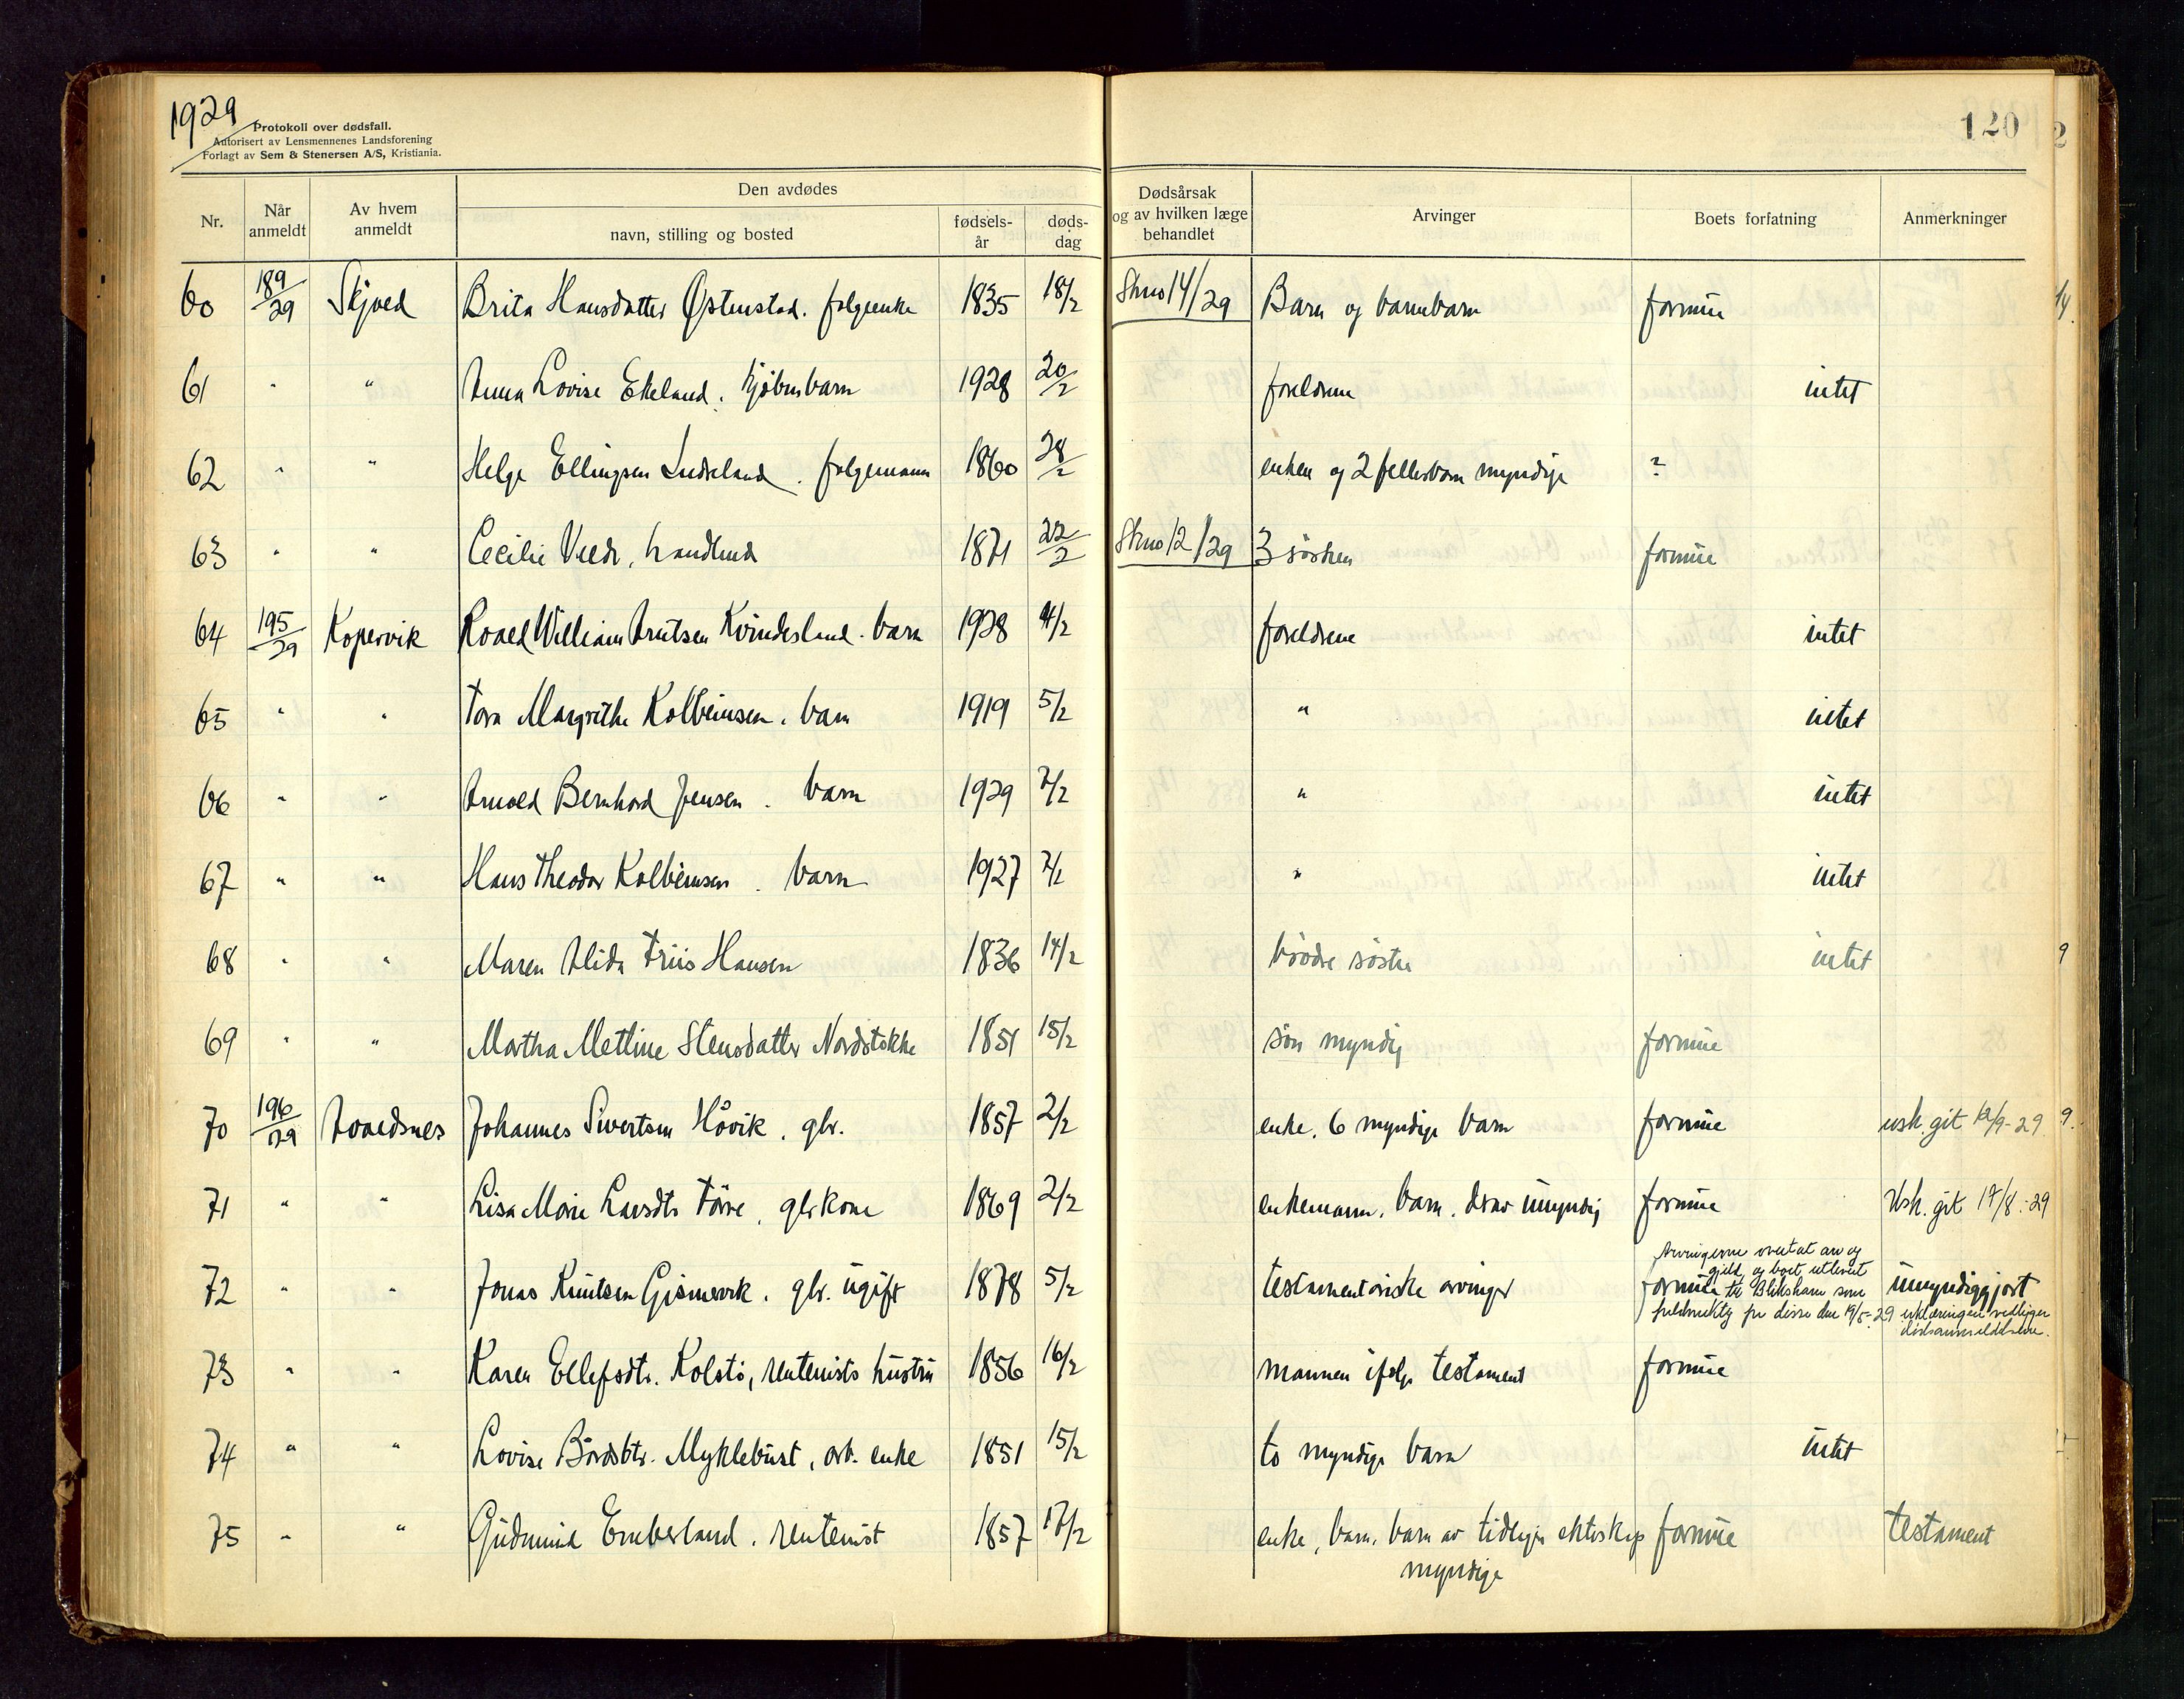 1929
Protokoll over dødsfall.
Autorisert av Lensmennenes Landsforening
Forlagt av Sem & Stenersen A/S, Kristiania.
120
Nr. Når anmeldt Av hvem anmeldt Den avdødes navn, stilling og bosted fødsels-år døds-dag Dødsårsak og av hvilken læge behandlet Arvinger Boets forfatning Anmerkninger
60 189/29 Skjold Brita Hansdatter Østenstad. folgeenke 1835 18/2 Skno 14/29 Barn og barnebarn formue
61 " " Anna Lovise Ekeland. kjøbmbarn 1928 20/2 foreldrene intet
62 " " Helge Ellingsen Indreland. folgemann 1860 28/2 enken og 2 fellesbarn myndige ?
63 " " Cecilie Veedr, handlend 1871 22/2 Skno 12/29 3 søsken formue
64 195/29 Kopervik Roald William Knutsen Kvindesland. barn 1928 4/2 foreldrene intet
65 " " Tora Margrethe Kolbeinsen. barn 1919 5/2 " intet
66 " " Arnold Bernhard Jensen. barn 1929 7/2 " intet
67 " " Hans Theodor Kolbeinsen. barn 1927 7/2 " intet
68 " " Maren Alida Friis Hansen 1836 14/2 brødre søstre intet
69 " " Martha Metline Stensdatter Nordstokke 1851 15/2 søn myndig formue
70 196/29 Avaldsnes Johannes Sivertsen Håvik. gbr. 1857 2/2 enke. 6 myndige barn formue usk. git 12/9-29
71 " " Lisa Marie Larsdtr Førre, gbrkone 1869 2/2 enkemann. barn. derav umyndig formue Usk. git 17/8-29
72 " " Jonas Knutsen Gismervik. gbr. ugift 1878 5/2 testamentariske arvinger formue umyndiggjort
Arvingerne overtat arv og
gjeld og boet utlevert
til Blikshavn som
fuldmektig for disse den 19/5-29 erklæringen vedligger
dødsanmeldelsene.
73 " " Karen Ellefsdtr. Kolstø, rentenists hustru 1856 16/2 mannen ifølge testament formue
74 " " Lovise Bårdsdtr. Myklebust, arb. enke 1851 15/2 to myndige barn intet
75 " " Gudmund Emberland. rentenist 1857 17/2 enke, barn, barn av tidligere ekteskap formue testament
myndige